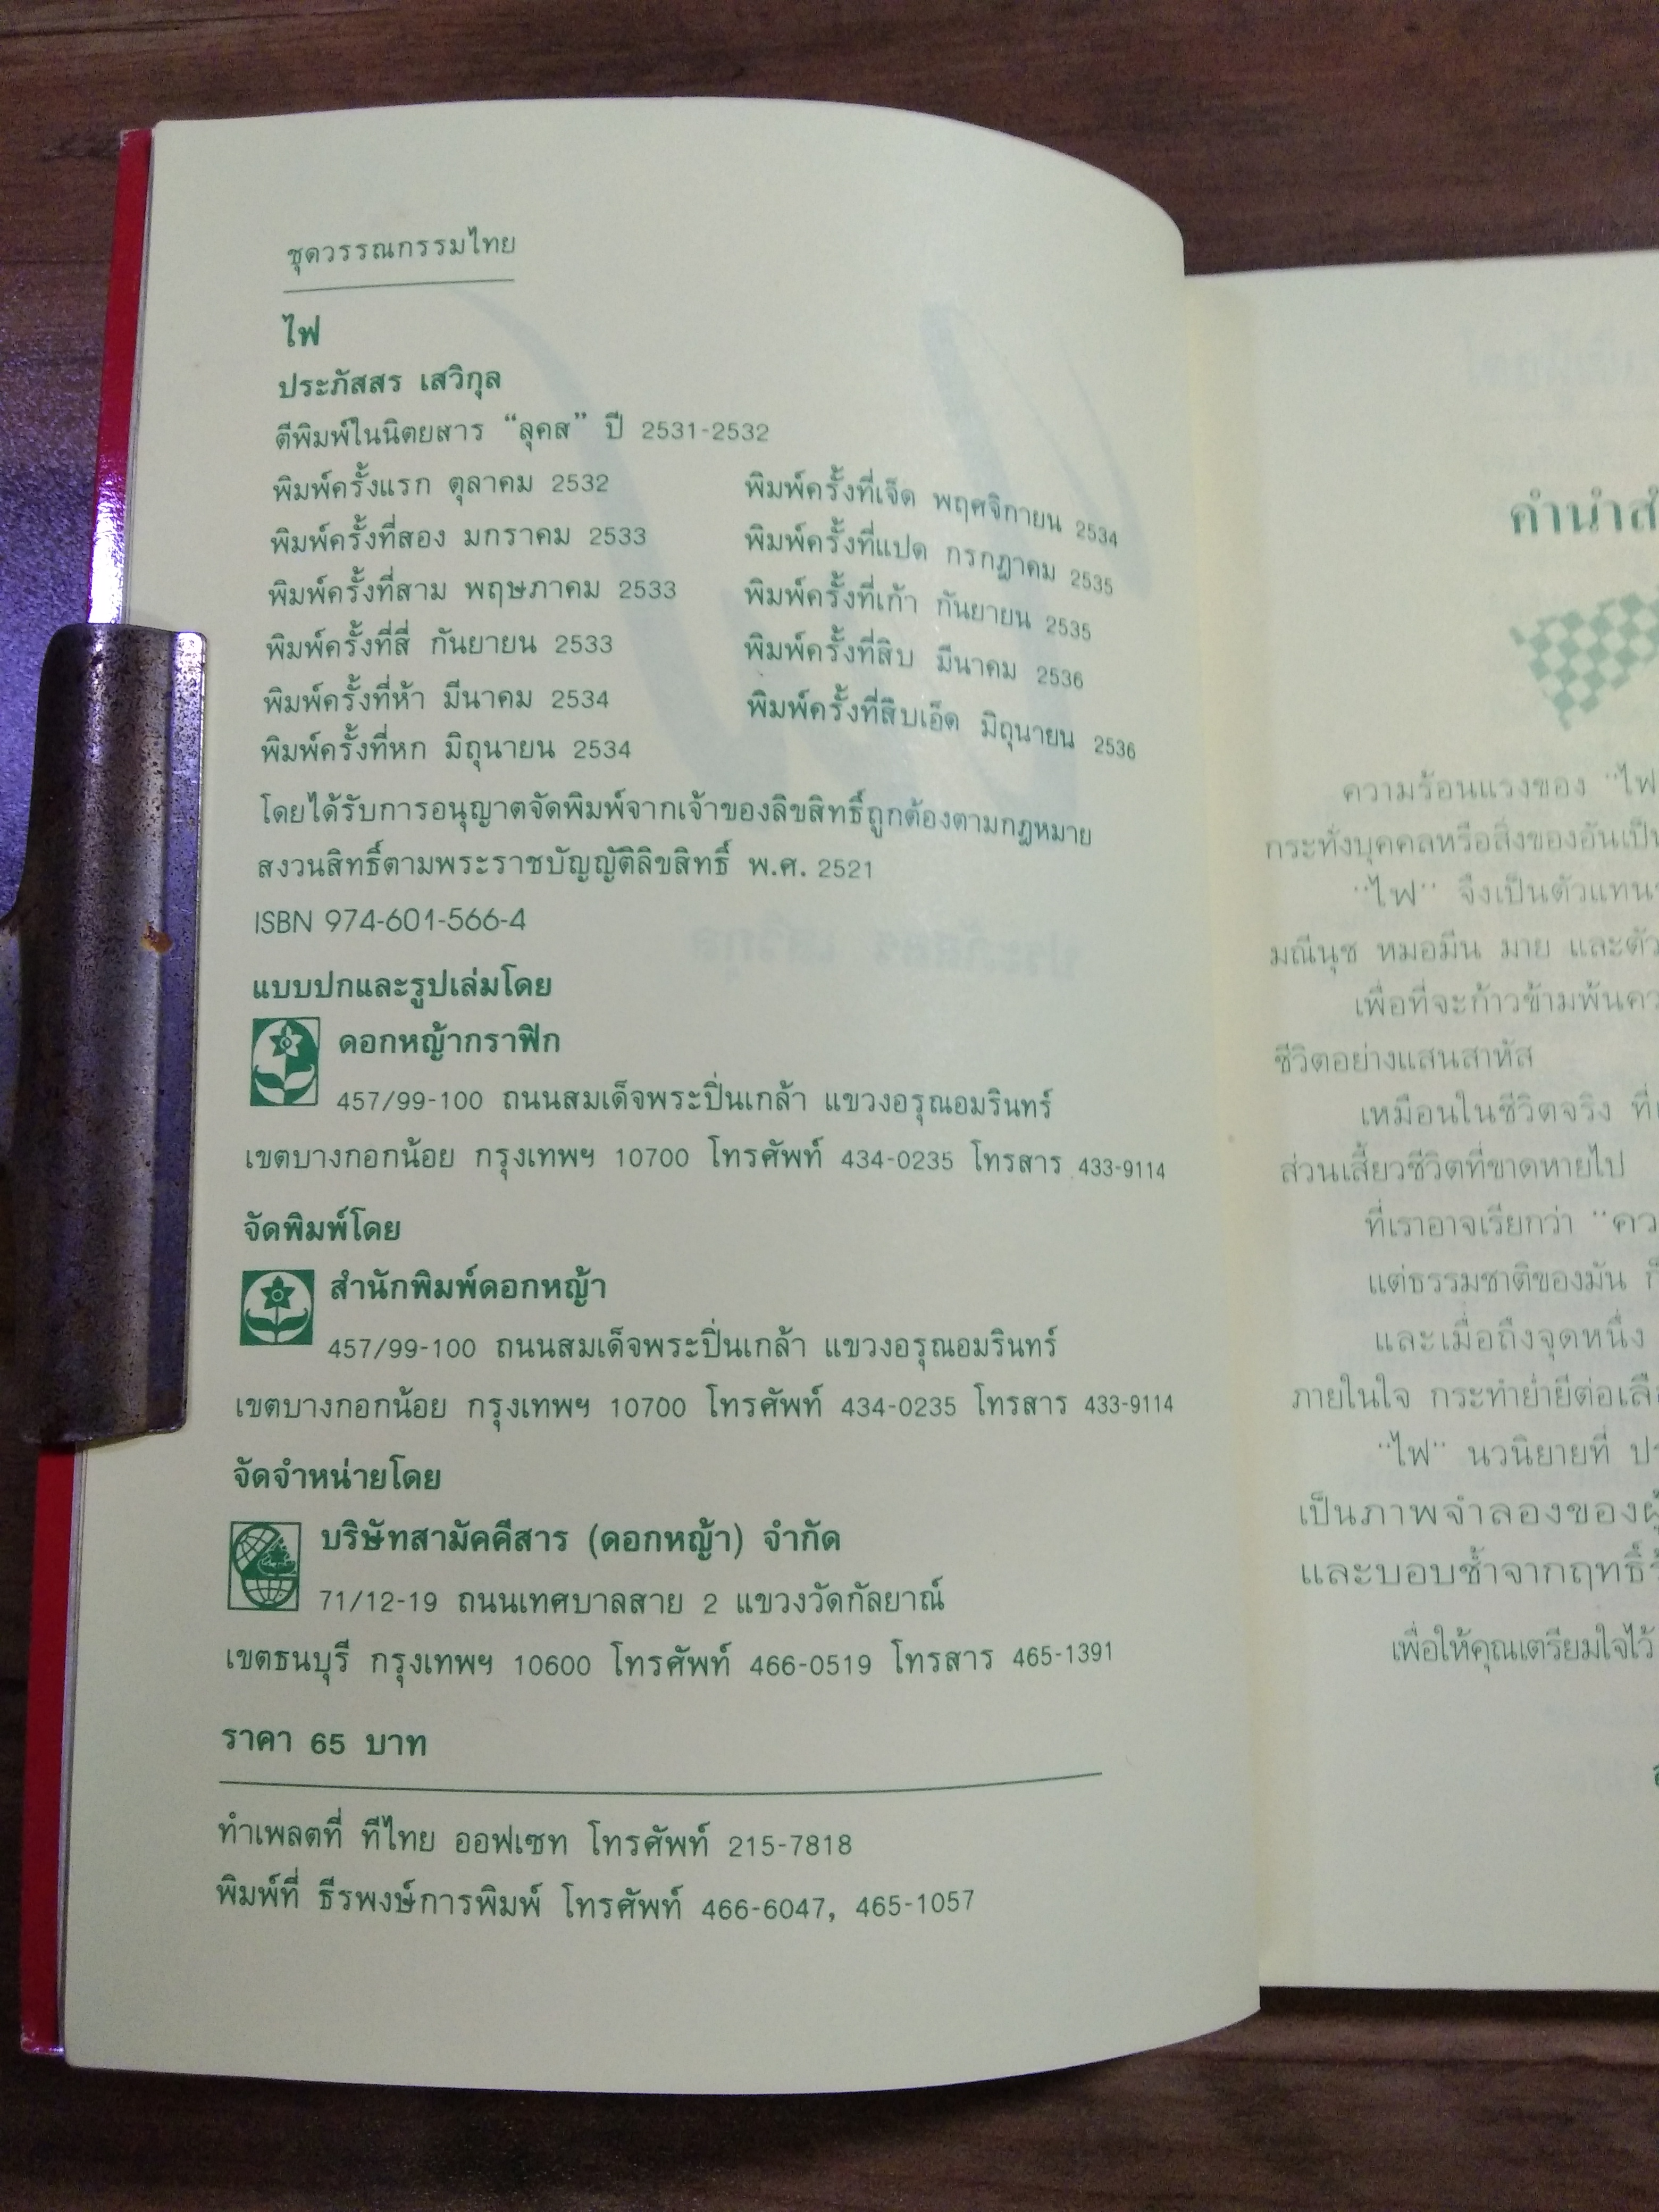 ชุดวรรณกรรมไทย
ไฟ
ประภัสสร เสวิกุล
ตีพิมพ์ในนิตยสาร “ลุคส” ปี 2531-2532
พิมพ์ครั้งแรก ตุลาคม 2532
พิมพ์ครั้งที่สอง มกราคม 2533
พิมพ์ครั้งที่สาม พฤษภาคม 2533
พิมพ์ครั้งที่สี่ กันยายน 2533
พิมพ์ครั้งที่ห้า มีนาคม 2534
พิมพ์ครั้งที่หก มิถุนายน 2534
พิมพ์ครั้งที่เจ็ด พฤศจิกายน 2534
พิมพ์ครั้งที่แปด กรกฎาคม 2535
พิมพ์ครั้งที่เก้า กันยายน 2535
พิมพ์ครั้งที่สิบ มีนาคม 2536
พิมพ์ครั้งที่สิบเอ็ด มิถุนายน 2536
โดยได้รับการอนุญาตจัดพิมพ์จากเจ้าของลิขสิทธิ์ถูกต้องตามกฎหมาย
สงวนสิทธิ์ตามพระราชบัญญัติลิขสิทธิ์ พ.ศ. 2521
ISBN 974-601-566-4
แบบปกและรูปเล่มโดย
ดอกหญ้ากราฟิก
457/99-100 ถนนสมเด็จพระปิ่นเกล้า แขวงอรุณอมรินทร์
เขตบางกอกน้อย กรุงเทพฯ 10700 โทรศัพท์ 434-0235 โทรสาร 433-9114
จัดพิมพ์โดย
สำนักพิมพ์ดอกหญ้า
457/99-100 ถนนสมเด็จพระปิ่นเกล้า แขวงอรุณอมรินทร์
เขตบางกอกน้อย กรุงเทพฯ 10700 โทรศัพท์ 434-0235 โทรสาร 433-9114
จัดจำหน่ายโดย
บริษัทสามัคคีสาร (ดอกหญ้า) จำกัด
71/12-19 ถนนเทศบาลสาย 2 แขวงวัดกัลยาณ์
เขตธนบุรี กรุงเทพฯ 10600 โทรศัพท์ 466-0519 โทรสาร 465-1391
ราคา 65 บาท
ทำเพลตที่ ทีไทย ออฟเซท โทรศัพท์ 215-7818
พิมพ์ที่ ธีรพงษ์การพิมพ์ โทรศัพท์ 466-6047, 465-1057
คำนำ
ความร้อนแรงของ “ไฟ
กระทั่งบุคคลหรือสิ่งของอันเป็น
“ไฟ” จึงเป็นตัวแทน
มณีนุช หมอมีน มาย และตัว
เพื่อที่จะก้าวข้ามพ้น
ชีวิตอย่างแสนสาหัส
เหมือนในชีวิตจริง ที่
ส่วนเสี้ยวชีวิตที่ขาดหายไป
ที่เราอาจเรียกว่า “คว
แต่ธรรมชาติของมัน ก็
และเมื่อถึงจุดหนึ่ง
ภายในใจ กระทำย่ำยีต่อ
“ไฟ” นวนิยายที่ ปร
เป็นภาพจำลองของผู้
และบอบช้ำจากฤทธิ์
เพื่อให้คุณเตรียมใจไว้